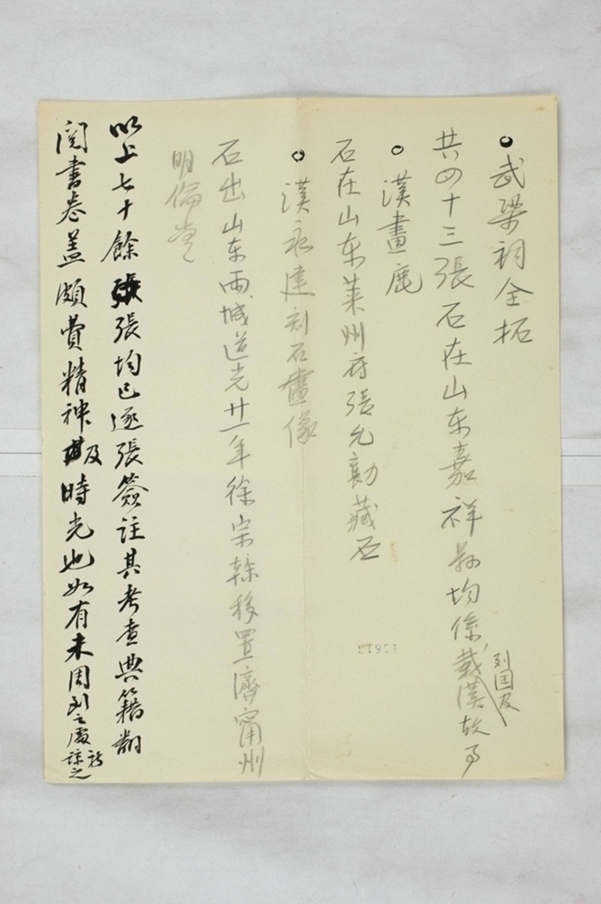 武梁祠全拓
共四十三張石在山东嘉祥縣均係戴漢故事
列国及
漢畫鹿
石在山东萊州府張允勷藏石
漢永建刻石畫像
石出山东兩城道光廿一年徐宗幹移置濟甯州
明倫堂
以上七十餘張均已逐張簽註其考查典籍翻
閱書卷蓋頗費精神及時光也如有未周到之處祈諒之